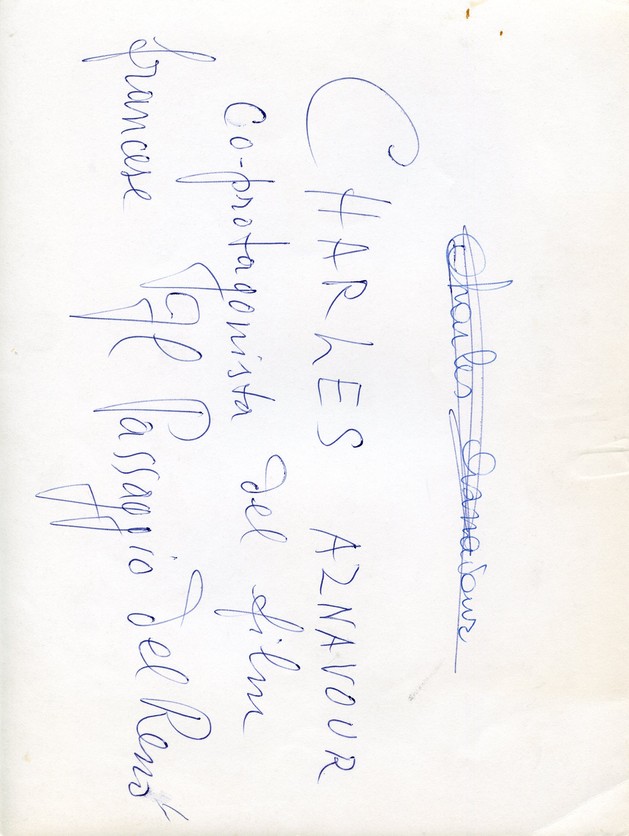 Charles
CHARLES AZNAVOUR
Co-protagonista del film
francese "Il Passaggio del Reno"